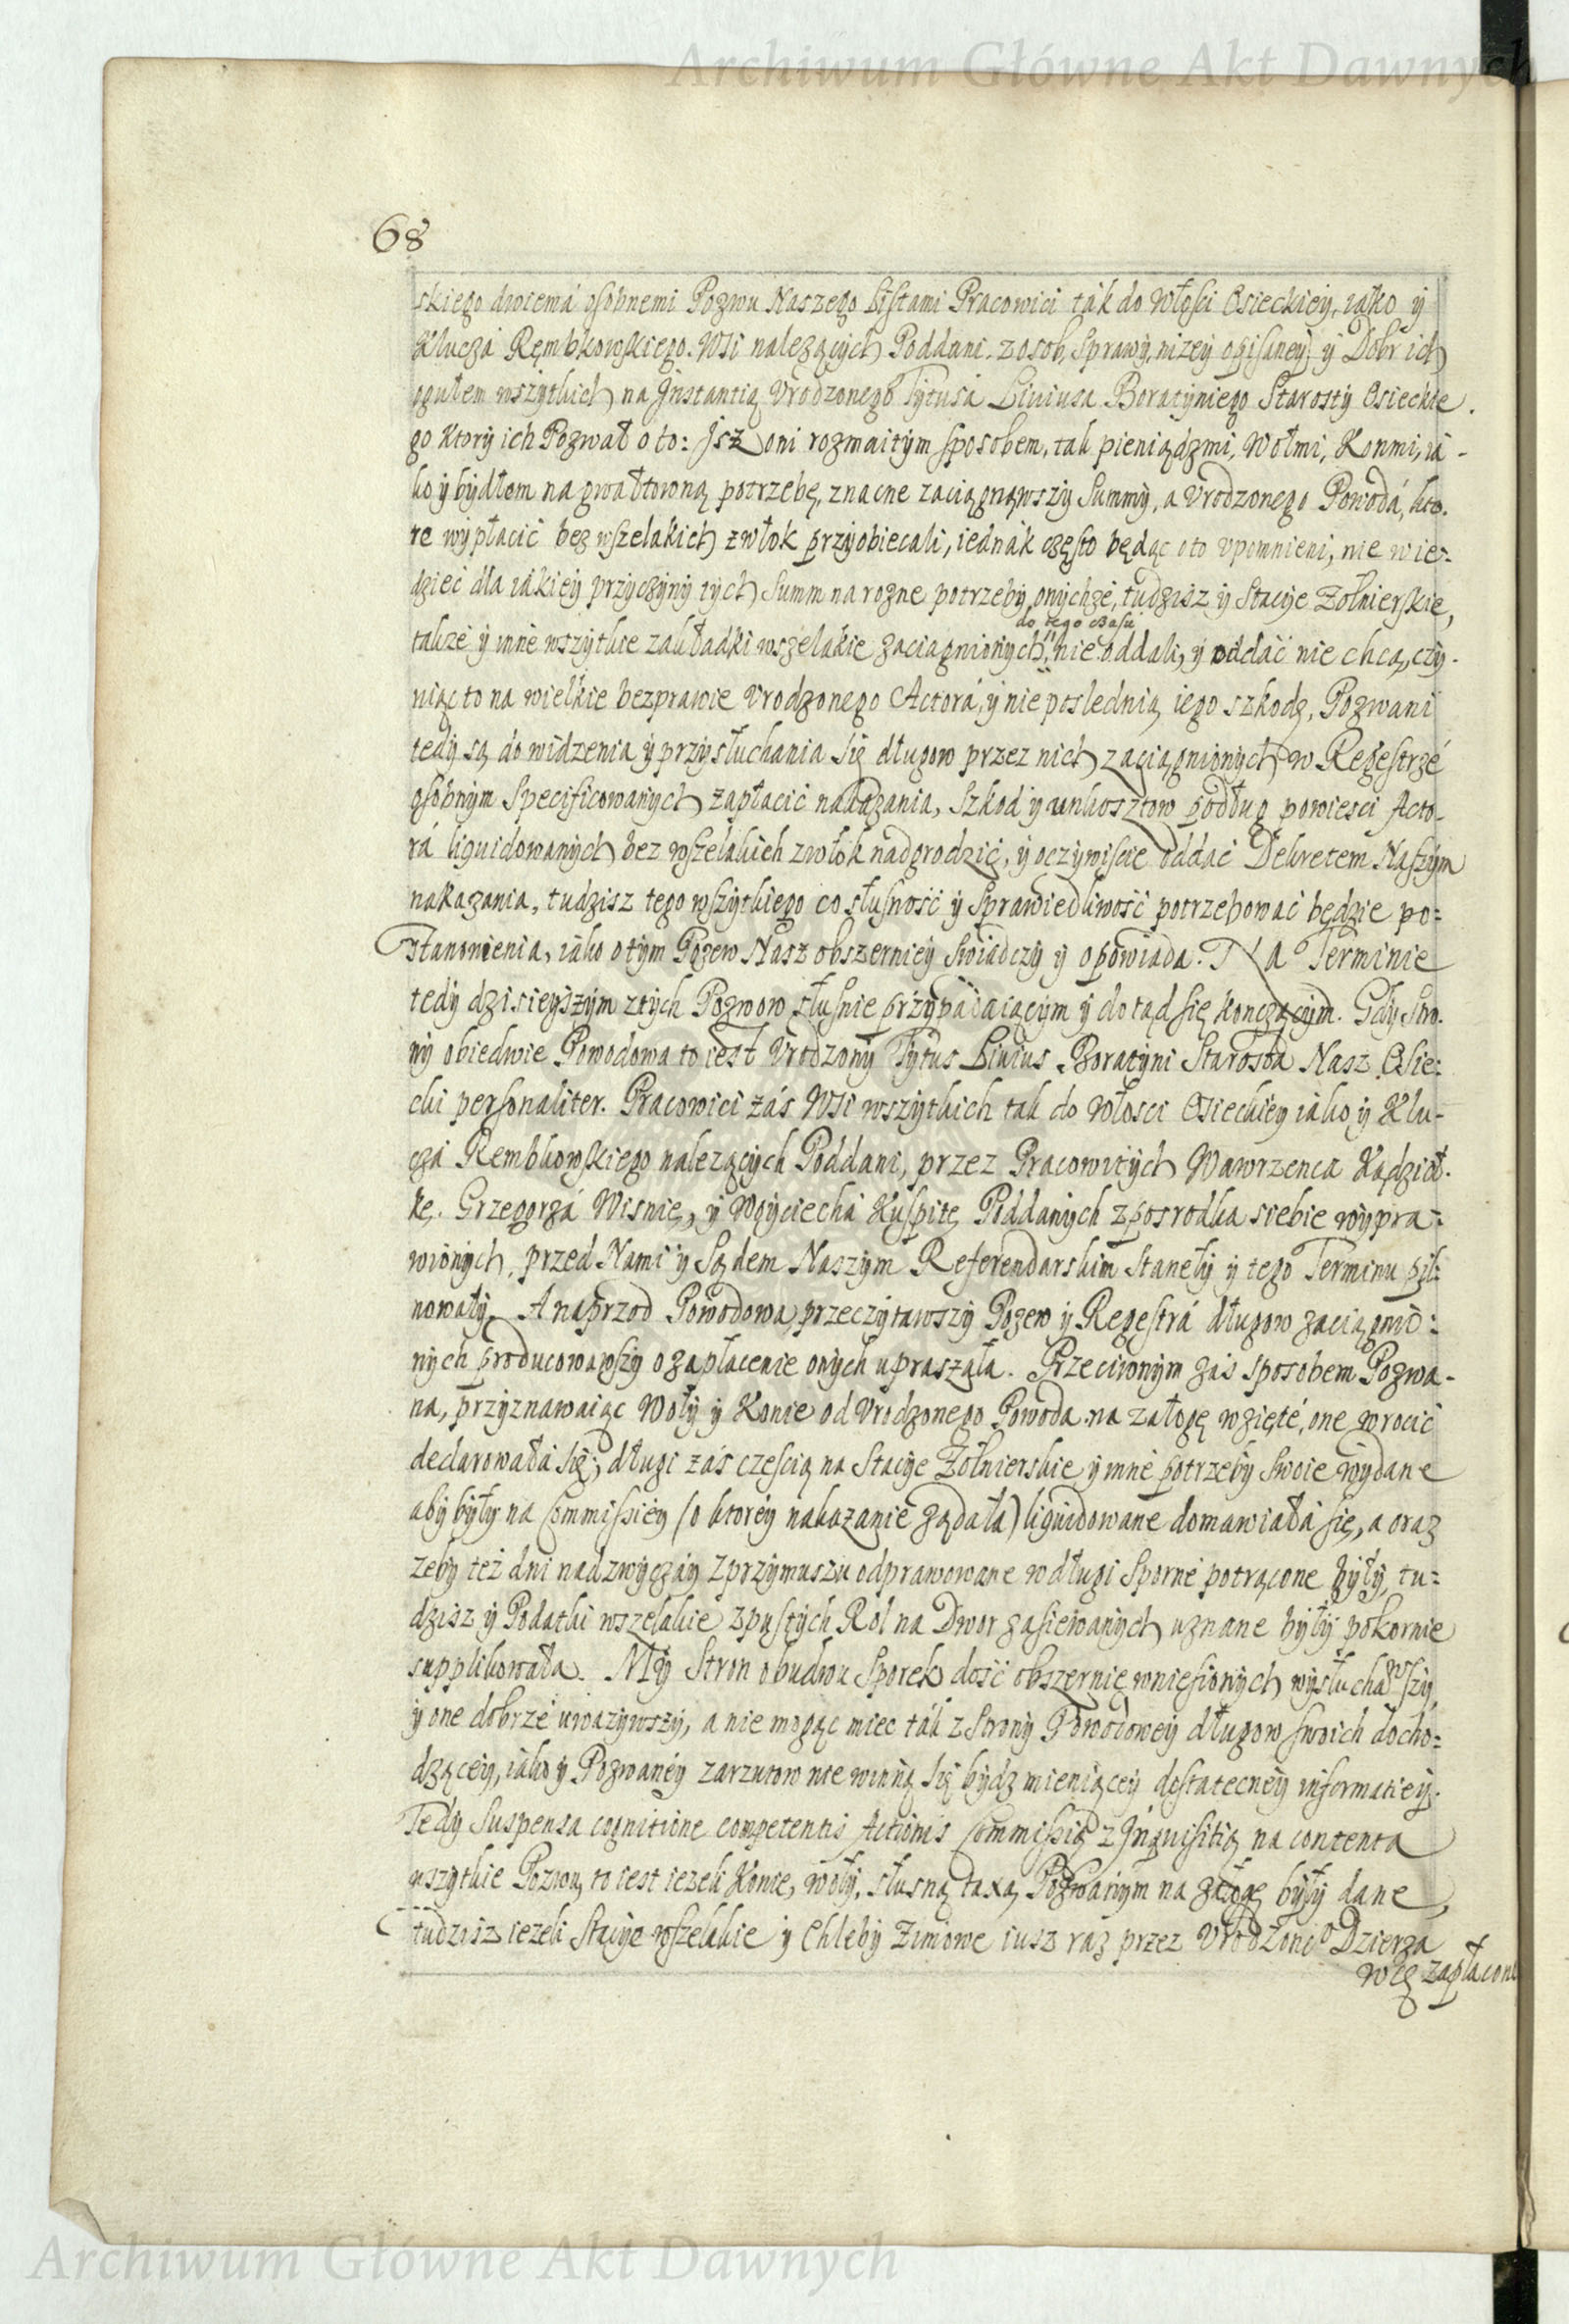 Archiwum Główne Akt Dawnych
68
skiego dwiemá osobnemi Pozwu Naszego Listami Pracowici ták do Włosci Osieckiey, iáko y
Klucżá Rębkowskiego. Wsi nalezących Poddani. z osob, Sprawy, nizey opisaney, y Dobr ich
ogułem wszytkich na Jnstantią Vrodzonego Tytusa Liuiusa Boratyniego Starosty Osieckie.
go ktory ich Pozwał o to: Jsz oni rozmaitym sposobem, tak pieniądzmi, Wołmi, Konmi, iá-
ko y bydłem na gwałtowną potrzebę, znacne zaciągnąwszy Summy, a Vrodzonego Powodá, kto.
re wypłacić bez wszelakich zwłok przyobiecali, iednák często będąc oto vpomnieni, nie wie:
dzieć dla iákiey przyczyny tych Summ na rozne potrzeby onychze, tudzisz y Stacye Zołnierskie,
do tego czasu
takze y inne wszytkie zakładki wszelakie zaciągnionych, nie oddali, y oddać nie chcą, czy-
niąc to na wielkie bezprawie Vrodzonego Actorá, y nie poslednią iego szkodę, Pozwani
tedy są do widzenia y przysłuchania się długow przez nich zaciągnionych w Regestrzé
osobnym Specificowanych zapłacić nakazania, Szkod y unkosztow podług powiesci Acto-
rá liquidowanych bez wszelakich zwłok nadgrodzić, y oczywiscie oddać Dekretem Naszym
nakazania, tudzisz tego wszytkiego co słusność y Sprawiedliwość potrzebować będzie po:
stanowienia, iáko o tym Pozew Nasz obszerniey Swiadczy y opowiada. Na Terminie
tedy dzisieyszym z tych Pozwow słusnie przypadaiącym y do tąd się konczącym. Gdy Stro.
ny obiedwie Powodowa to iest Vrodzony Tytus Liuius Boratyni Starosta Nasz Osie:
cki personaliter. Pracowici záś Wsi wszytkich tak do Włosci Osieckiey iako y Klu-
czá Rembkowskiego nalezących Poddani, przez Pracowitych Wawrzenca Kądzioł.
kę. Grzegorzá Wisnię, y Woyciecha Kuspitę Poddanych z posrodka siebie wypra:
wionych, przed Nami y Sądem Naszym Referendarskim Stanęły y tego Terminu pil:
nowały. A naprzod Powodowa przeczytawszy Pozew y Regestrá długow zaciągnio:
nych producowawszy o zapłacenie onych upraszała. Przeciwnym zaś sposobem Pozwa-
na, przyznawaiąc Woły y Konie od Vrodzonego Powoda na załogę wzięté, one wrocić
declarowałá się, długi záś częscią na Stacye Zołnierskie y inné potrzeby Swoie wydane
aby były na Commissiéy (o ktorey nakazanie ządała) liquidowane domawiałá się, a oraz
zeby też dni nadzwyczáy z przymuszu odprawowane w długi Sporné potrącone były, tu=
dzisz y Podatki wszelakie z pustych Rol na Dwor zasiewanych uznane były pokornie
supplikowała. My Stron obudwu Sporek dość obszernię wniesionych wysłuchawszy,
y one dobrze uwazywszy, a nie mogąc miec ták z Strony Powodowey długow swoich docho=
dzącey, iáko y Pozwanéy zarzutow nie winną się bydz mieniącey dostatecney informatiey.
Tedy Suspensa cognitione competentis Actionis Commissią z Jnquisitią na contenta
wszytkie Pozwu, to iest iezeli Konie, woły, słusną taxą Pozwanym na załogę były dane,
tudzisz iezeli Stacye wszelakie y Chleby Zimowe iusz raz przez Vrodzoneo Dzierza
wcę zapłacone
Archiwum Główne Akt Dawnych